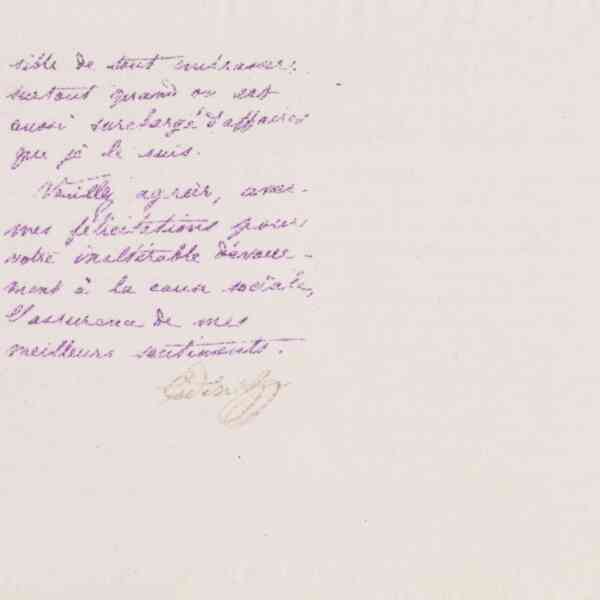 sible de tout embrasser,
surtout quand on est
aussi surchargé d'affaires
que je le suis.
Veuillez agréer, avec
mes félicitations pour
votre inaltérable dévoue-
ment à la cause sociale,
l'assurance de mes
meilleurs sentiments.